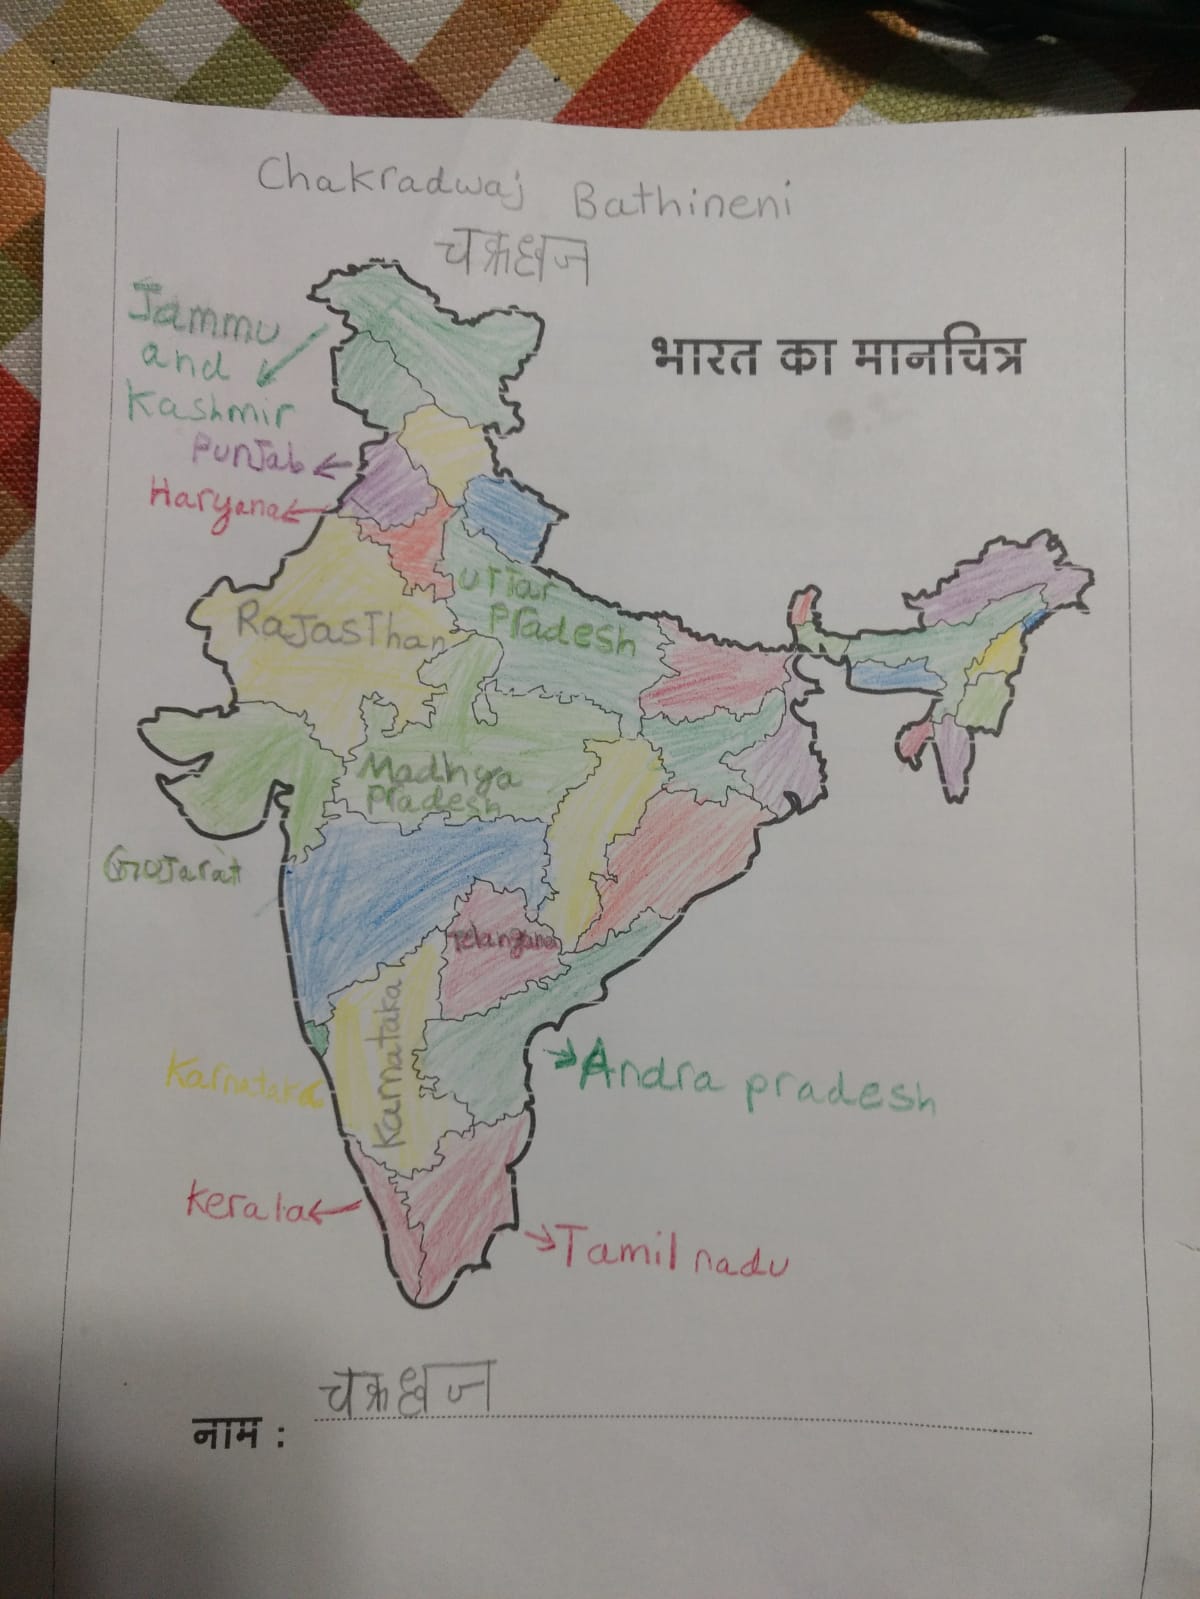 Chakradwaj Bathineni
चक्रध्वज
भारत का मानचित्र
Jammu
and
Kashmir
Punjab
Haryana
Uttar
Pradesh
Rajasthan
Madhya
Pradesh
Gujarat
Telangana
Karnataka
Karnataka
Andra pradesh
Kerala
Tamil nadu
नाम : चक्रध्वज